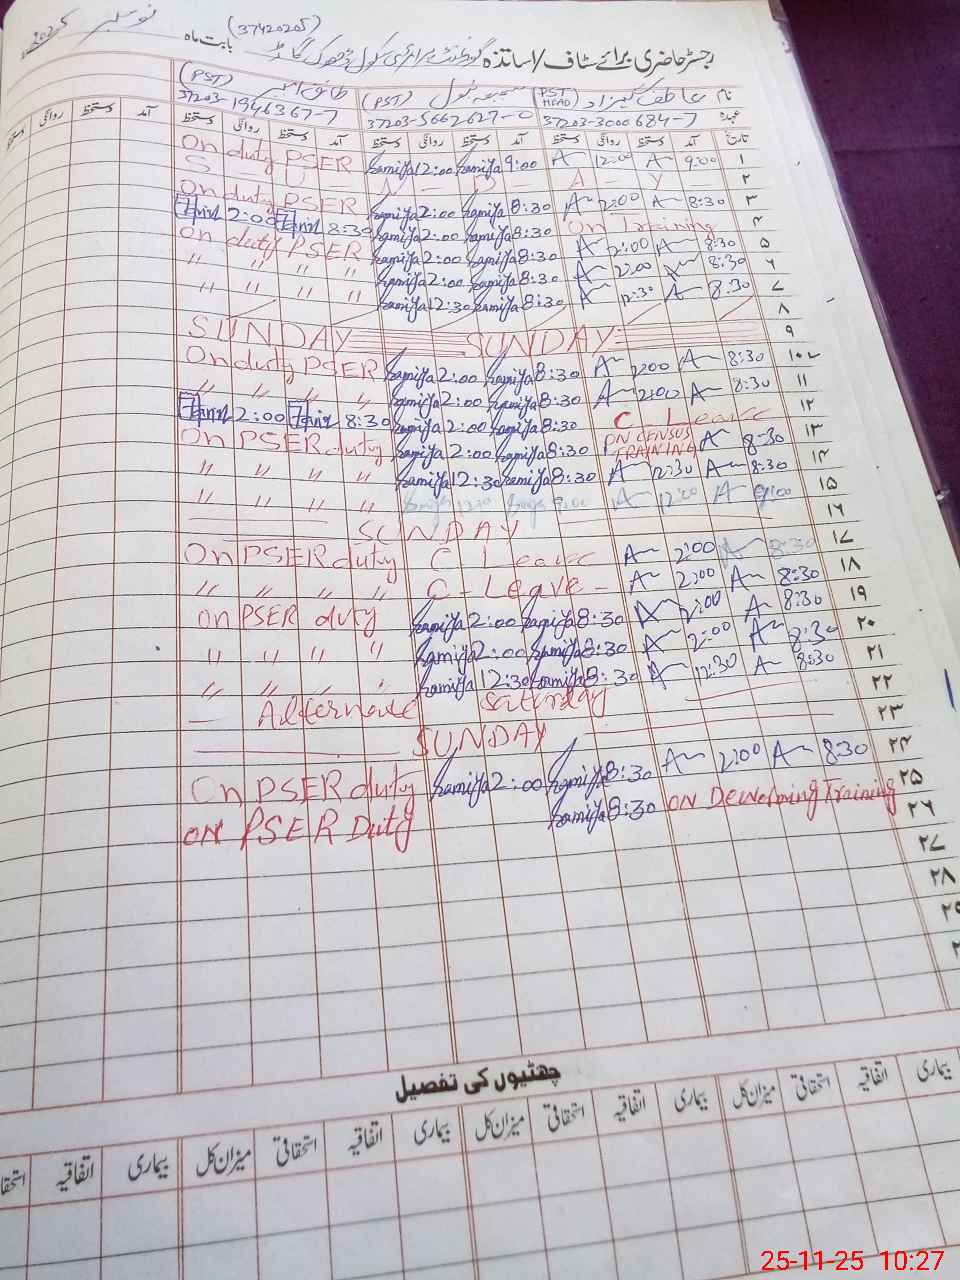 رجسٹر حاضری برائے سٹاف/اساتذہ گورنمنٹ پرائمری سکول (37420205) بابت ماہ نومبر 2025
نام (PST HEAD) (PST) (PST)
عہدہ 37203-3000684-7 37203-5662627-0 37203-1946367-7
تاریخ آمد دستخط روانگی دستخط آمد دستخط روانگی دستخط آمد دستخط روانگی دستخط آمد دستخط روانگی دستخط
۱ 9:00 A 12:00 A 9:00 Samiya 12:00 Samiya On duty PSER
۲ S - U - N - D - A - Y -
۳ 8:30 A 2:00 A 8:30 Samiya 2:00 Samiya On duty PSER
۴ On Training 8:30 Samiya 2:00 Samiya 8:30 2:00
۵ 8:30 A 2:00 A 8:30 Samiya 2:00 Samiya On duty PSER
۶ 8:30 A 2:00 A 8:30 Samiya 2:00 Samiya " " " "
۷ 8:30 A 12:30 A 8:30 Samiya 12:30 Samiya " " " "
۸
۹ SUNDAY SUNDAY
۱۰ 8:30 A 2:00 A 8:30 Samiya 2:00 Samiya On duty PSER
۱۱ 8:30 A 2:00 A 8:30 Samiya 2:00 Samiya " " " "
۱۲ C Leave 8:30 Samiya 2:00 Samiya 8:30 2:00
۱۳ 8:30 A ON CENSUS TRAINING 8:30 Samiya 2:00 Samiya On PSER duty
۱۴ 8:30 A 12:30 A 8:30 Samiya 12:30 Samiya " " " "
۱۵ 9:00 A 12:00 A " " " "
۱۶ SUNDAY
۱۷ 8:30 A 2:00 A C Leave On PSER duty
۱۸ 8:30 A 2:00 A C - Leave - " " " "
۱۹ 8:30 A 2:00 A 8:30 Samiya 2:00 Samiya On PSER duty
۲۰ 8:30 A 2:00 A 8:30 Samiya 2:00 Samiya " " " "
۲۱ 8:30 A 12:30 A 8:30 Samiya 12:30 Samiya " " " "
۲۲ Alternate Saturday
۲۳ SUNDAY
۲۴ 8:30 A 2:00 A 8:30 Samiya 2:00 Samiya On PSER duty
۲۵ ON Deworming Training 8:30 Samiya ON PSER Duty
۲۶
۲۷
۲۸
چھٹیوں کی تفصیل
بیماری اتفاقیہ استحقاقی میزان کل بیماری اتفاقیہ استحقاقی میزان کل بیماری اتفاقیہ استحقاقی میزان کل بیماری اتفاقیہ
25-11-25 10:27